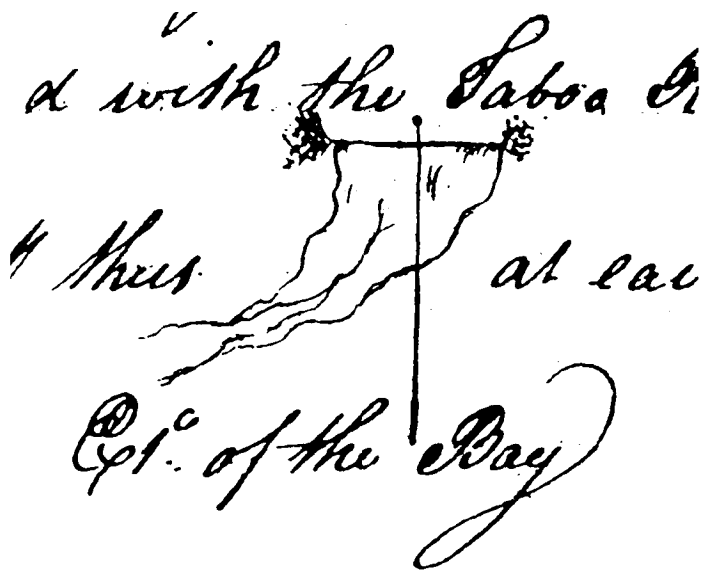 d with the Taboa
thus at
of the Bay